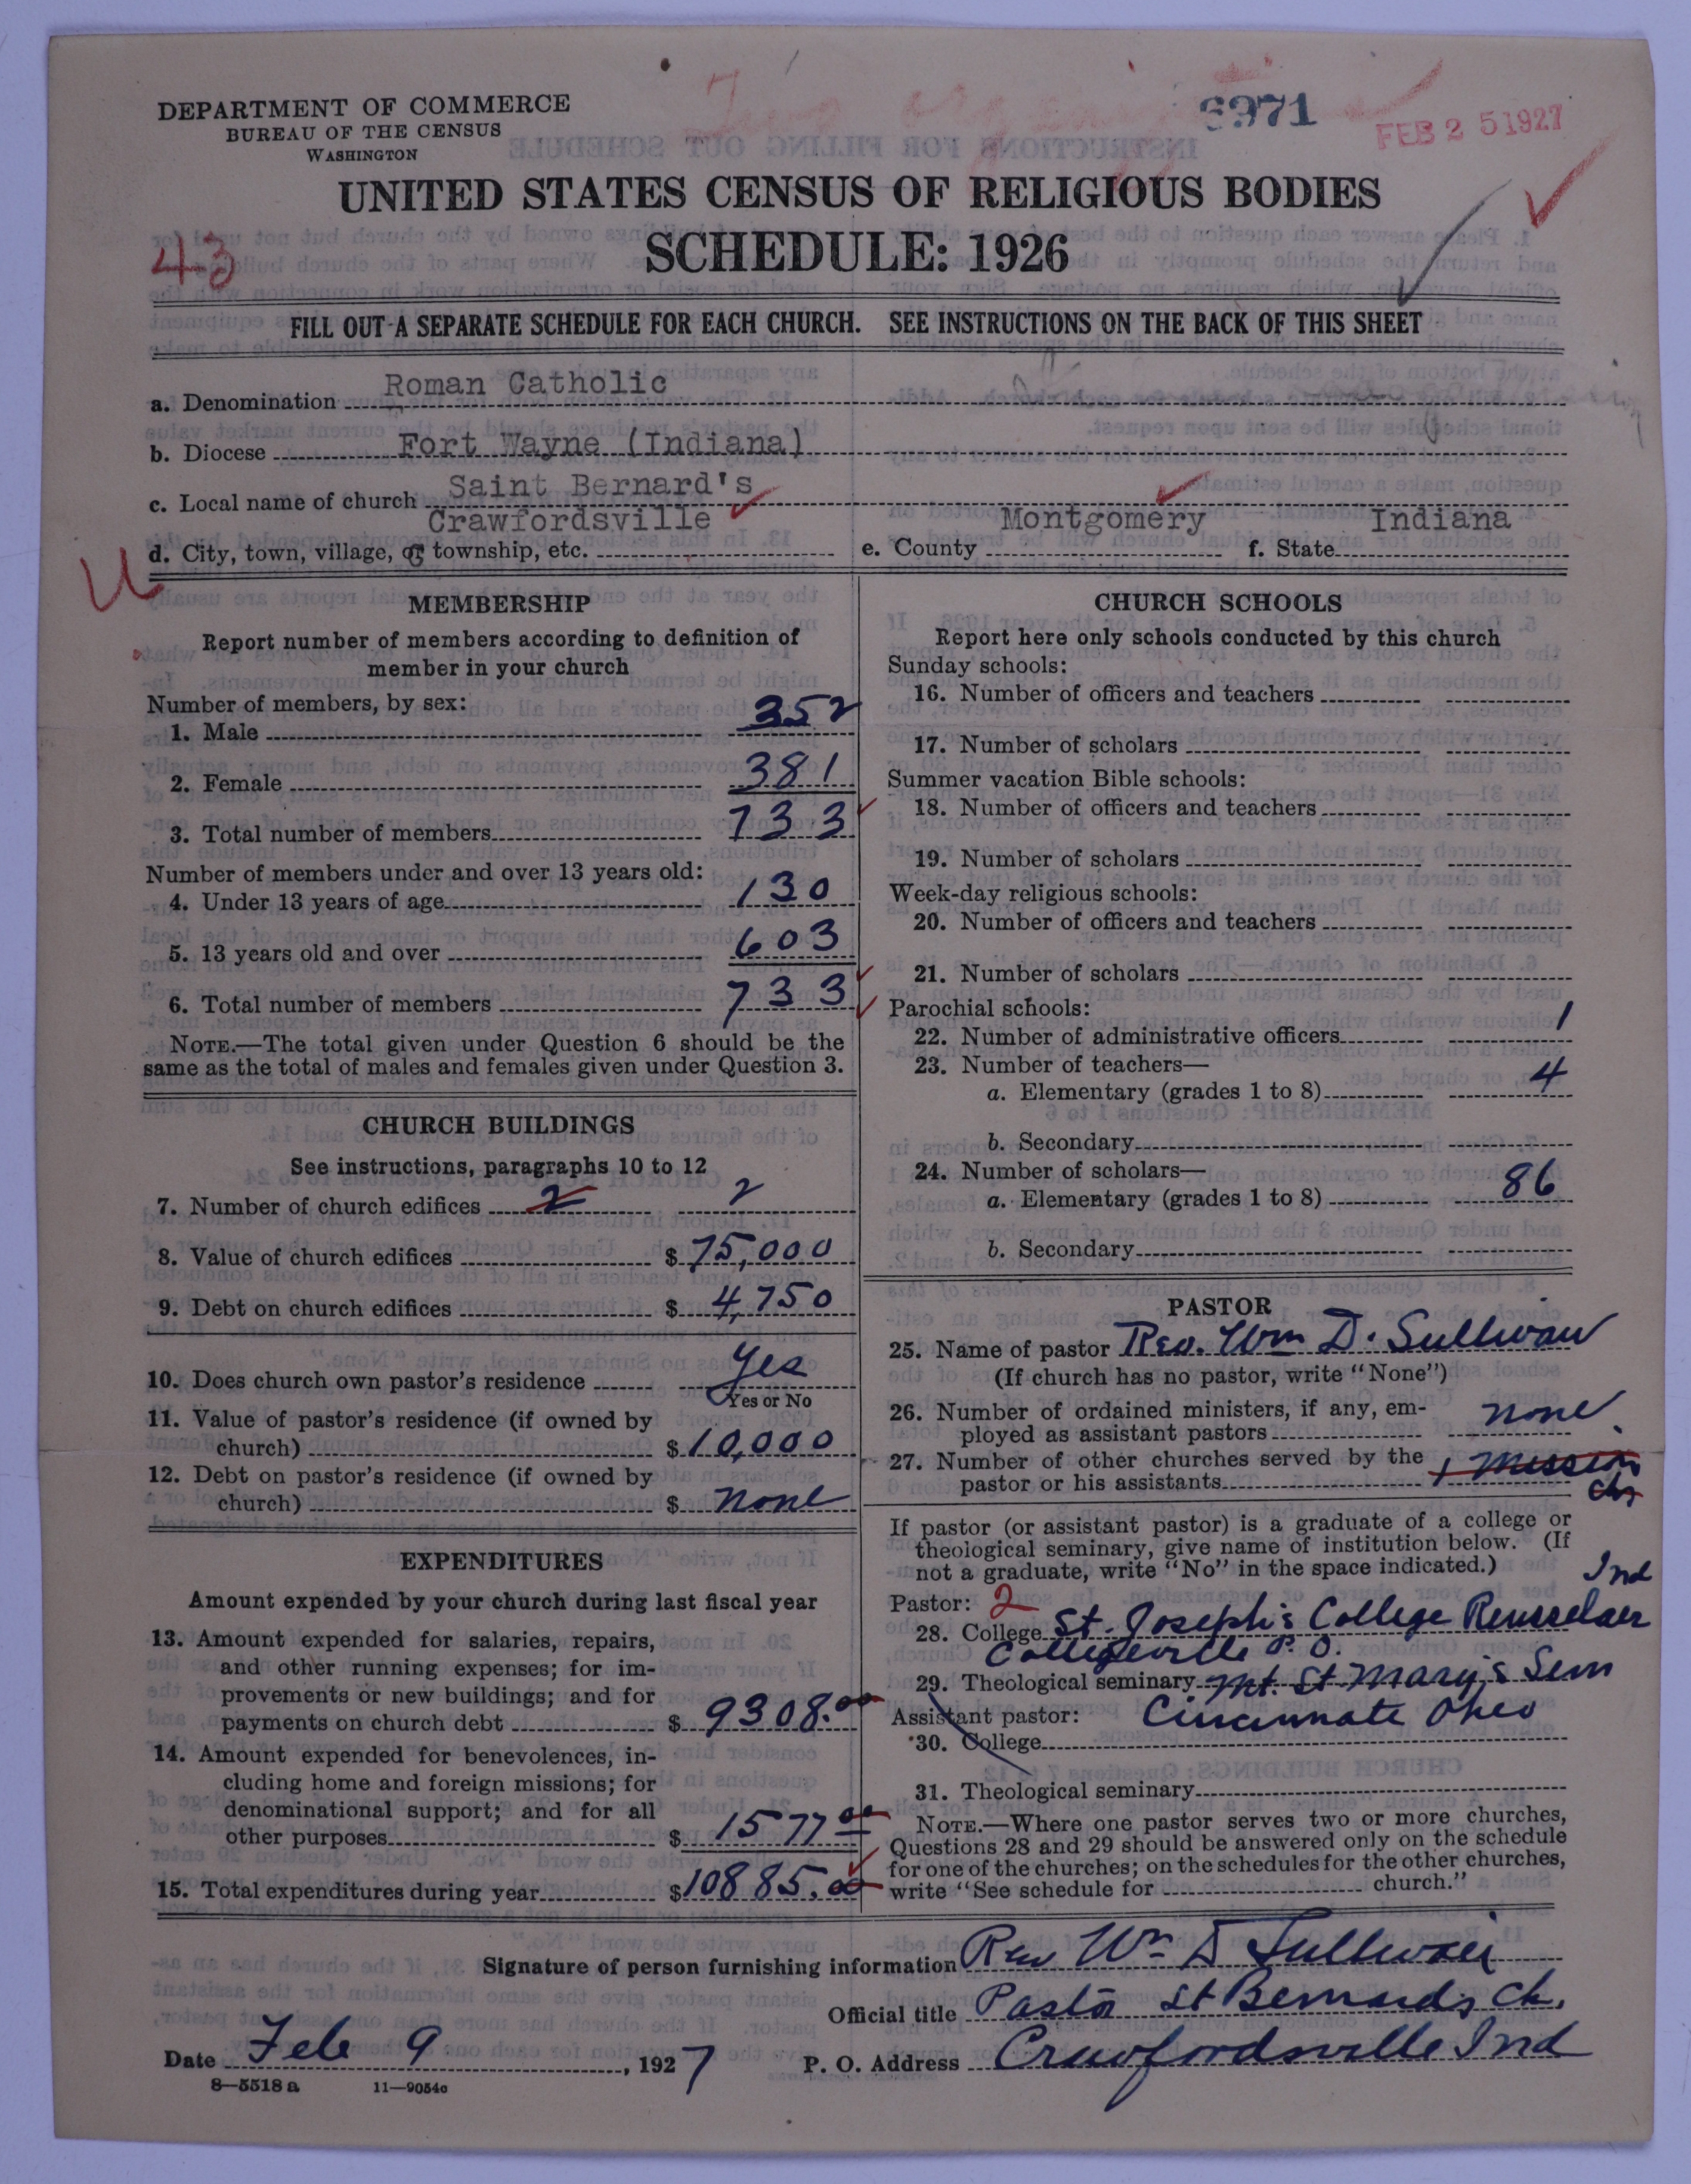 DEPARTMENT OF COMMERCE
BUREAU OF THE CENSUS
WASHINGTON
6971
FEB 25 1927
UNITED STATES CENSUS OF RELIGIOUS BODIES
SCHEDULE: 1926
43
FILL OUT A SEPARATE SCHEDULE FOR EACH CHURCH. SEE INSTRUCTIONS ON THE BACK OF THIS SHEET
a. Denomination Roman Catholic
b. Diocese Fort Wayne (Indiana)
c. Local name of church Saint Bernard's
d. City, town, village, or township, etc. Crawfordsville e. County Montgomery f. State Indiana
U
MEMBERSHIP
Report number of members according to definition of
member in your church
Number of members, by sex:
1. Male 352
2. Female 381
3. Total number of members 733
Number of members under and over 13 years old:
4. Under 13 years of age 130
5. 13 years old and over 603
6. Total number of members 733
NOTE.—The total given under Question 6 should be the
same as the total of males and females given under Question 3.
CHURCH BUILDINGS
See instructions, paragraphs 10 to 12
7. Number of church edifices 2 2
8. Value of church edifices $ 75,000
9. Debt on church edifices $ 4,750
10. Does church own pastor's residence Yes
Yes or No
11. Value of pastor's residence (if owned by
church) $ 10,000
12. Debt on pastor's residence (if owned by
church) $ none
EXPENDITURES
Amount expended by your church during last fiscal year
13. Amount expended for salaries, repairs,
and other running expenses; for im-
provements or new buildings; and for
payments on church debt $ 9308.00
14. Amount expended for benevolences, in-
cluding home and foreign missions; for
denominational support; and for all
other purposes $ 1577 00
15. Total expenditures during year $ 10885.00
CHURCH SCHOOLS
Report here only schools conducted by this church
Sunday schools:
16. Number of officers and teachers
17. Number of scholars
Summer vacation Bible schools:
18. Number of officers and teachers
19. Number of scholars
Week-day religious schools:
20. Number of officers and teachers
21. Number of scholars
Parochial schools:
22. Number of administrative officers 1
23. Number of teachers—
a. Elementary (grades 1 to 8) 4
b. Secondary
24. Number of scholars—
a. Elementary (grades 1 to 8) 86
b. Secondary
PASTOR
25. Name of pastor Rev. Wm D. Sullivan
(If church has no pastor, write "None")
26. Number of ordained ministers, if any, em-
ployed as assistant pastors none
27. Number of other churches served by the
pastor or his assistants 1 Mission
If pastor (or assistant pastor) is a graduate of a college or
theological seminary, give name of institution below. (If
not a graduate, write "No" in the space indicated.)
Pastor: 2 Ind
28. College St. Joseph's College Rensselaer
Collegeville P. O.
29. Theological seminary Mt. St Mary's Sem
Assistant pastor: Cincinnate Ohio
30. College
31. Theological seminary
NOTE.—Where one pastor serves two or more churches,
Questions 28 and 29 should be answered only on the schedule
for one of the churches; on the schedules for the other churches,
write "See schedule for church."
Signature of person furnishing information Rev Wm D Sullivan
Official title Pastor St Bernards Ch.
Date Feb 9, 1927 P. O. Address Crawfordsville Ind
8—5518 a 11—9054c